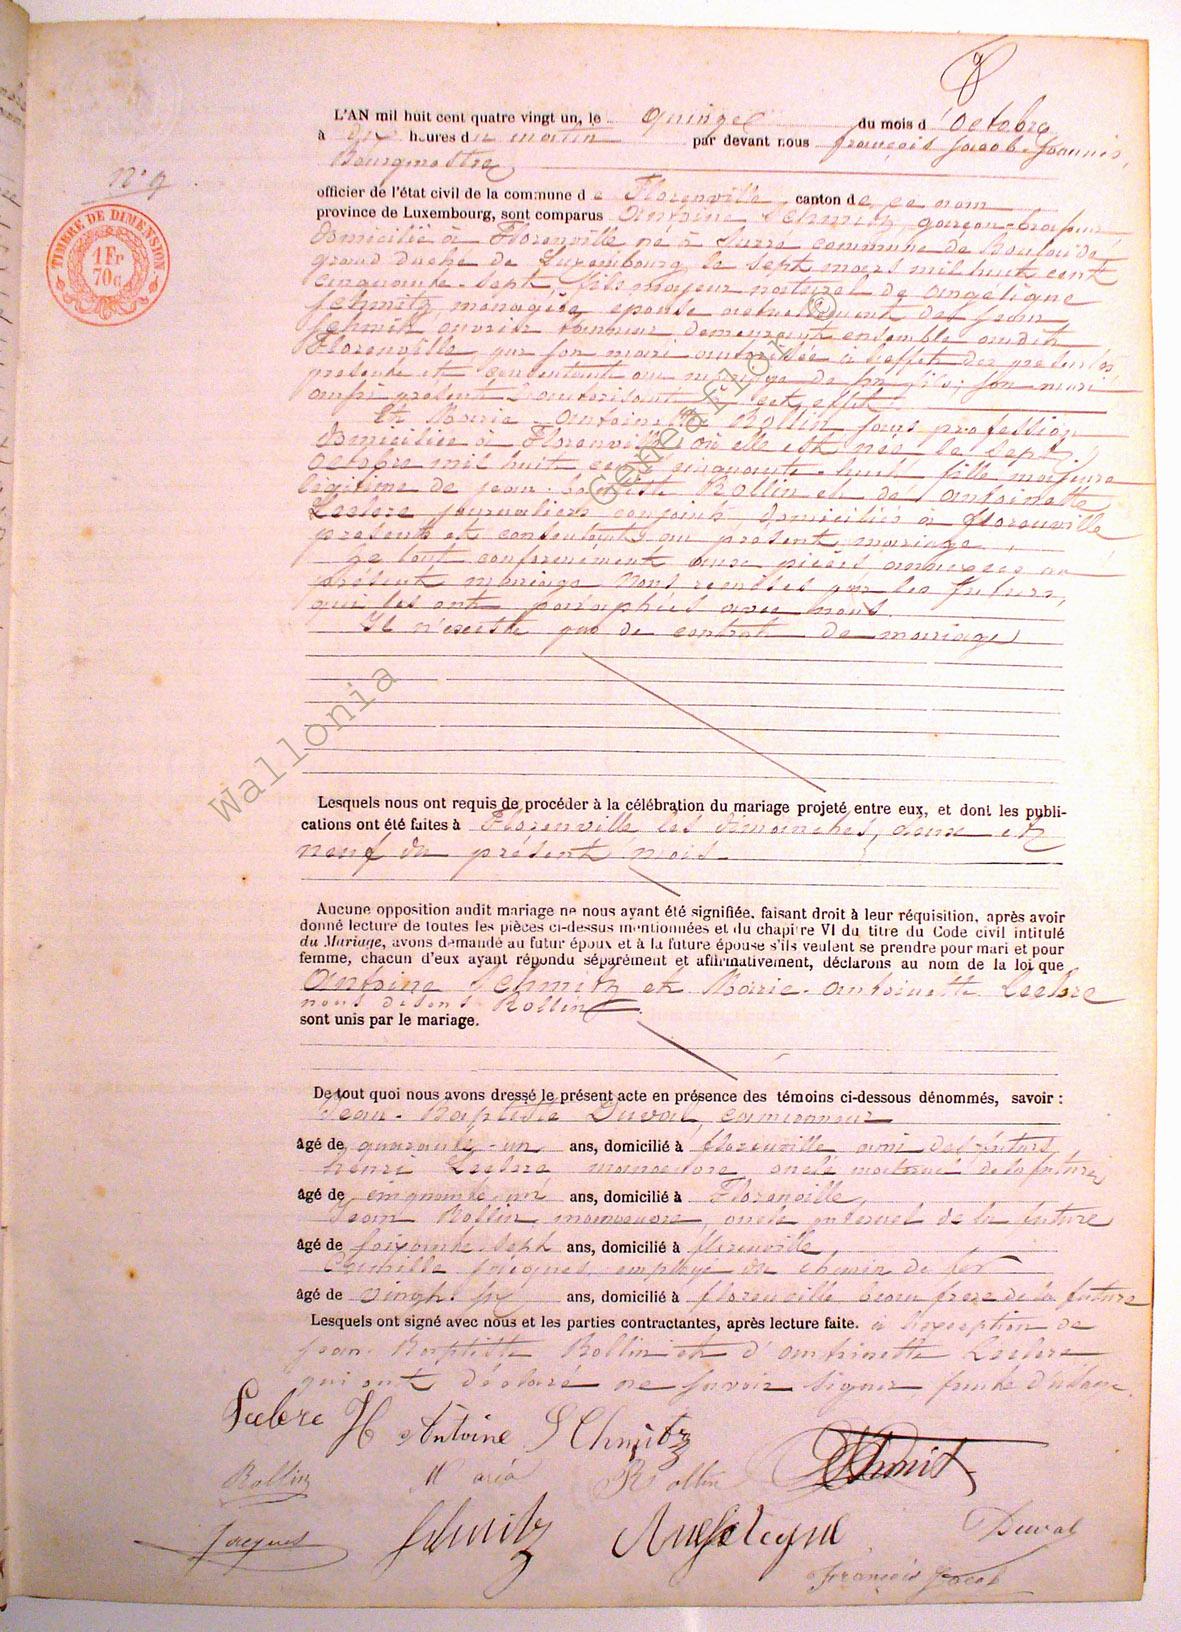 8
L'AN mil huit cent quatre vingt un, le quinze du mois d'octobre
à dix heures du matin par devant nous françois Jacob-Joannis,
Bourgmestre
N° 9
officier de l'état civil de la commune de Florenville, canton de ce nom
province de Luxembourg, sont comparus Antoine Schmitz, garçon-brasseur
domicilié à Florenville né à Surré commune de Boulaide
grand duché de Luxembourg le sept mars mil huit cent
TIMBRE DE DIMENSION
1 Fr
70 c
cinquante-sept, fils majeur naturel de Angélique
Schmitz, ménagère, épouse actuellement de Jean
Schmit ouvrier tanneur demeurant ensemble audit
Florenville, par son mari autorisée à l'effet des présentes,
présente et consentant au mariage de son fils; son mari
aussi présent autorisant à cet effet
Et Marie-Antoinette Rollin sans profession
domiciliée à Florenville où elle est née le sept
octobre mil huit cent cinquante-huit fille majeure
légitime de jean-baptiste Rollin et de Antoinette
Leclere journaliers conjoints, domiciliés à Florenville
présents et consentants au présent mariage,
Le tout conformément aux pièces annexées au
présent mariage Nous remises par les futurs,
qui les ont paraphées avec nous.
Il n'existe pas de contrat de mariage
Lesquels nous ont requis de procéder à la célébration du mariage projeté entre eux, et dont les publi-
cations ont été faites à Florenville les dimanches, deux et
neuf du présent mois.
Aucune opposition audit mariage ne nous ayant été signifiée, faisant droit à leur réquisition, après avoir
donné lecture de toutes les pièces ci-dessus mentionnées et du chapitre VI du titre du Code civil intitulé
du Mariage, avons demandé au futur époux et à la future épouse s'ils veulent se prendre pour mari et pour
femme, chacun d'eux ayant répondu séparément et affirmativement, déclarons au nom de la loi que
Antoine Schmitz et Marie-Antoinette Leclere
nous disons Rollin
sont unis par le mariage.
De tout quoi nous avons dressé le présent acte en présence des témoins ci-dessous dénommés, savoir :
Jean-Baptiste Duval, camionneur
âgé de quarante-un ans, domicilié à florenville ami des futurs
henri Leclere manoeuvre oncle maternel de la future
âgé de cinquante un ans, domicilié à Florenville,
Jean Rollin manoeuvre, oncle paternel de la future
âgé de soixante-sept ans, domicilié à florenville,
Jacques, employé du chemin de fer
âgé de vingt six ans, domicilié à florenville beau frere de la future
Lesquels ont signé avec nous et les parties contractantes, après lecture faite. à l'exception de
jean-Baptiste Rollin et d'antoinette Leclere
qui ont déclaré ne savoir signer faute d'usage.
Leclere H Antoine SChmitz Schmit
Rollin Maria Rollin
Jacques Schmitz Angelique Duval
François Jacob
Wallonia GeneaFlor ©